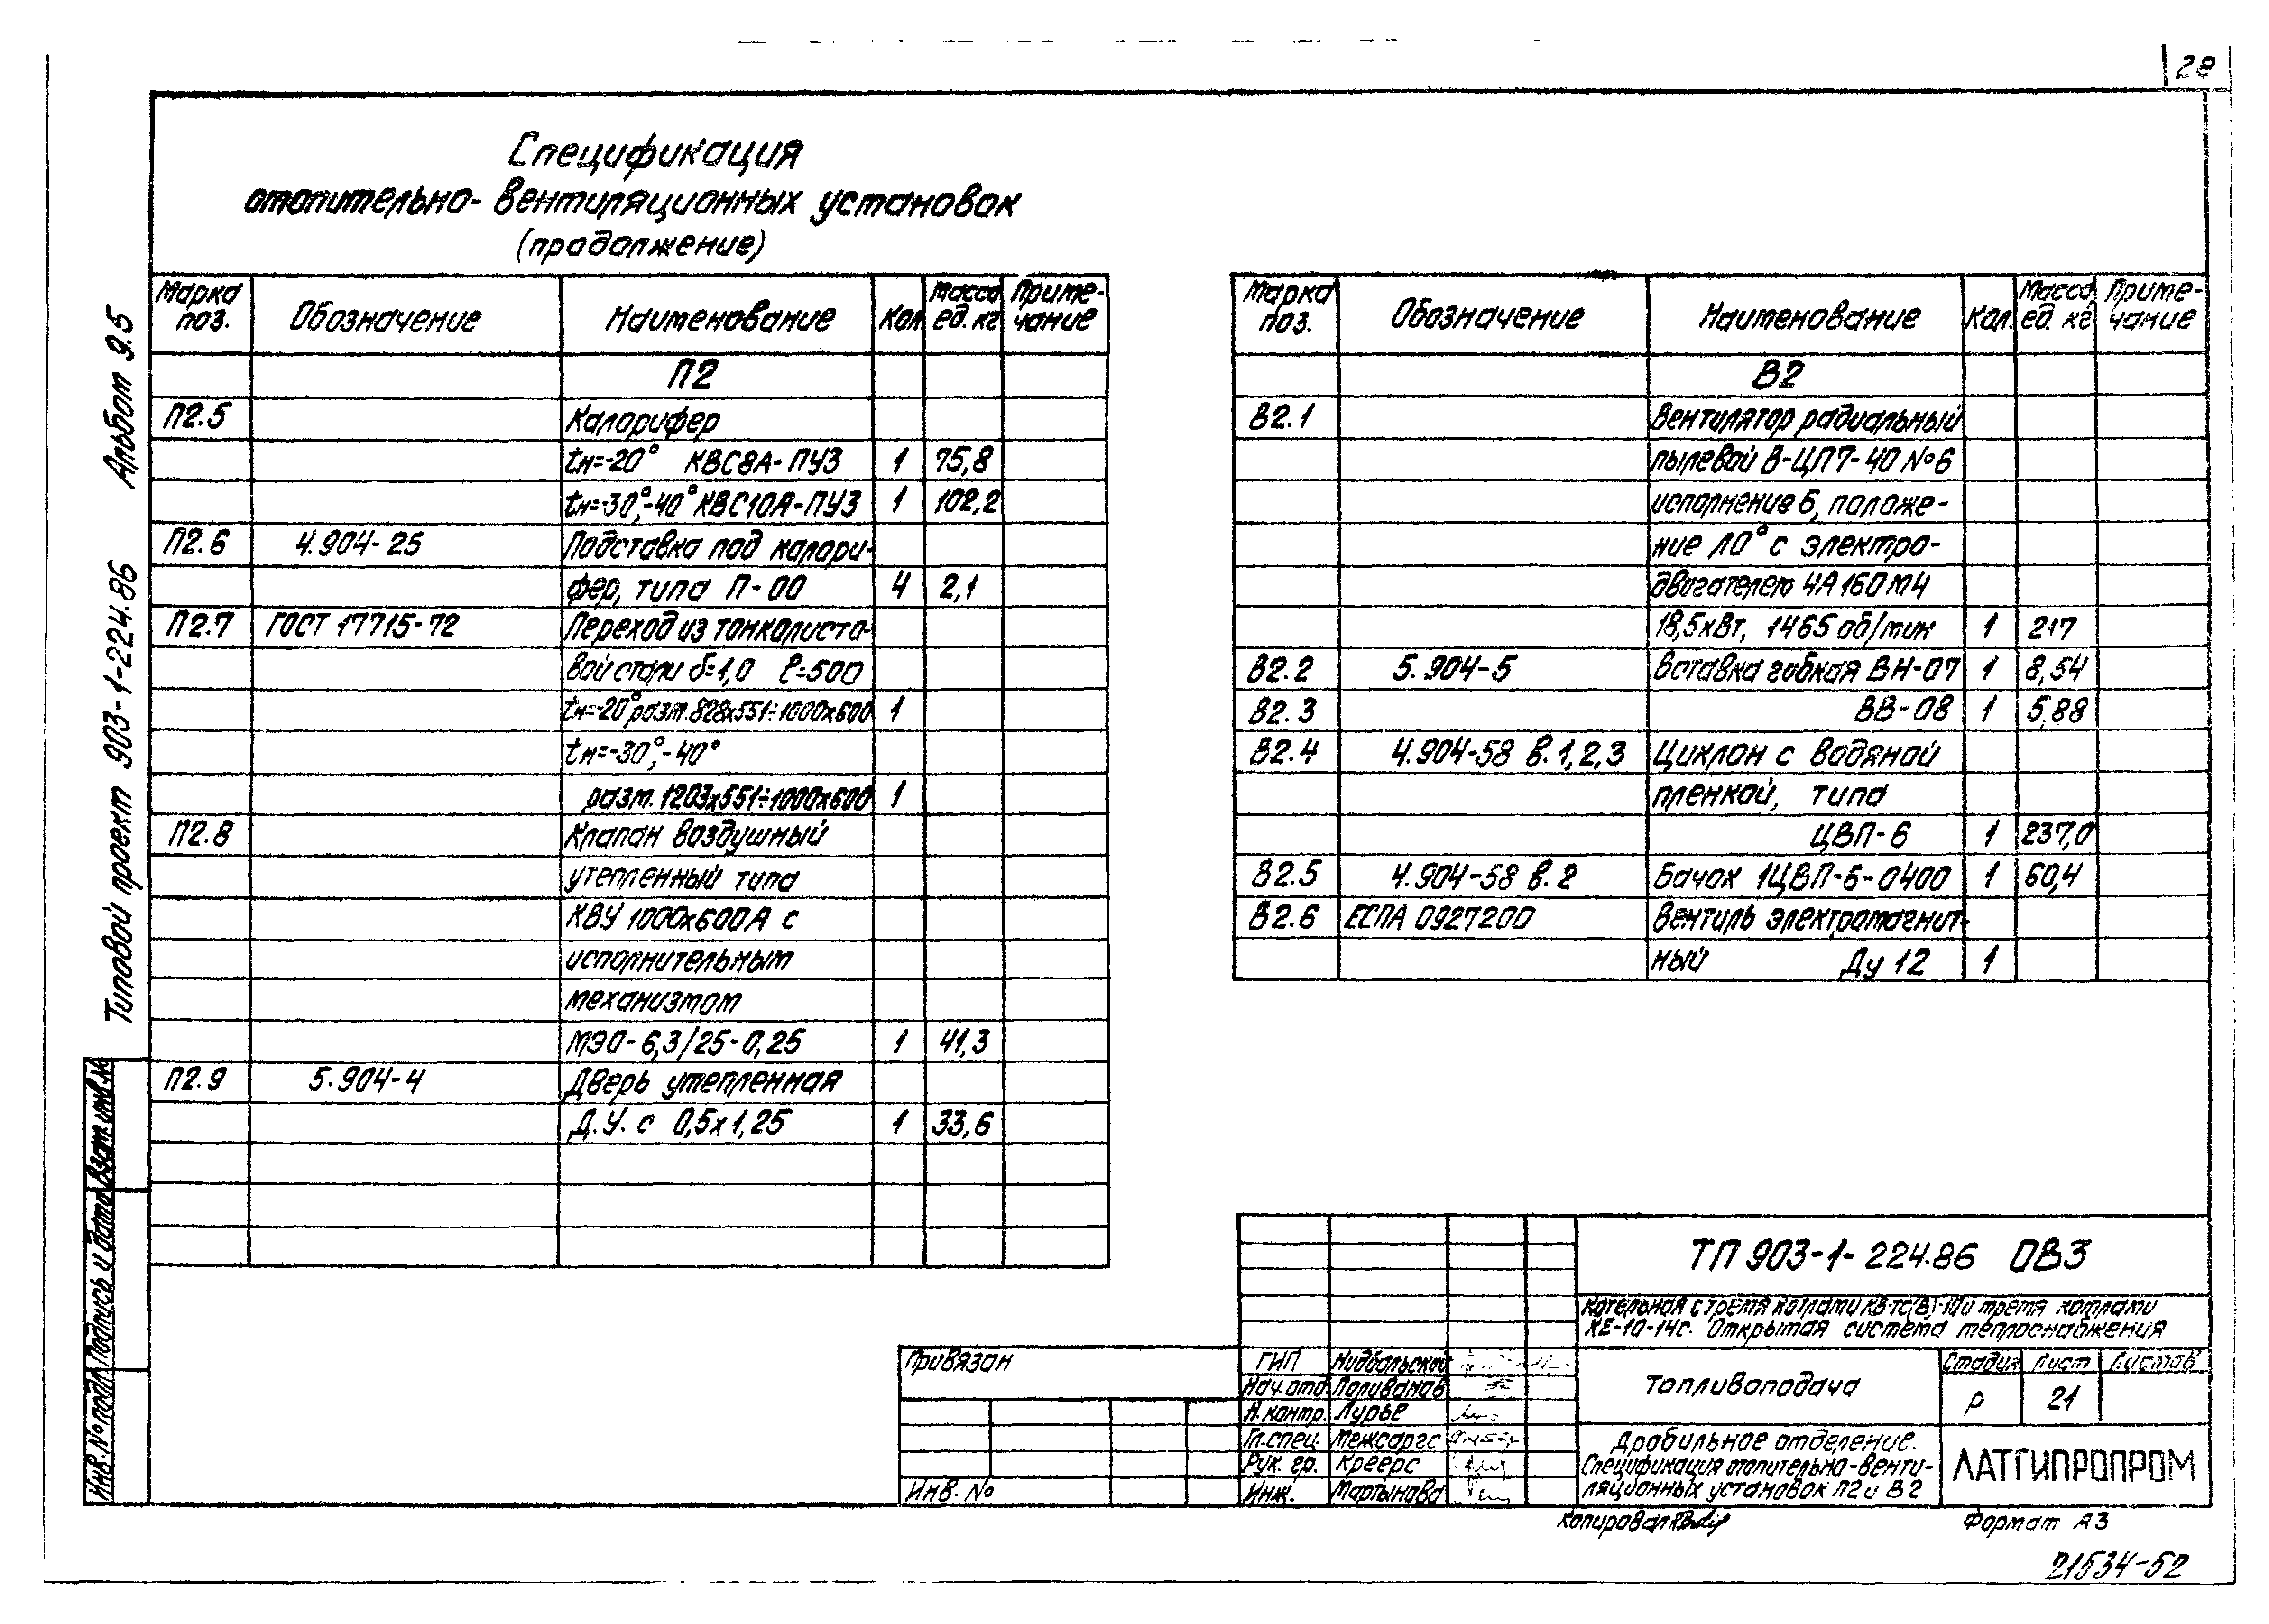 28
Спецификация
отопительно-вентиляционных установок
(продолжение)
Марка поз. Обозначение Наименование Кол Масса ед. кг Приме-чание
П2
П2.5 Калорифер
tн=-20° КВС8А-ПУЗ 1 75,8
tн=-30°,-40° КВС10А-ПУЗ 1 102,2
П2.6 4.904-25 Подставка под калори-
фер, типа П-00 4 2,1
П2.7 ГОСТ 17715-72 Переход из тонколисто-
вой стали δ=1,0 ℓ=500
tн=-20° разм. 828х551÷1000х600 1
tн=-30°,-40°
разм. 1203х551÷1000х600 1
П2.8 Клапан воздушный
утепленный типа
КВУ 1000х600А с
исполнительным
механизмом
МЭО-6,3/25-0,25 1 41,3
П2.9 5.904-4 Дверь утепленная
Д.У. с 0,5х1,25 1 33,6
Марка поз. Обозначение Наименование Кол. Масса ед. кг Приме-чание
В2
В2.1 Вентилятор радиальный
пылевой В-ЦП7-40 №6
исполнение 6, положе-
ние Л0° с электро-
двигателем 4А160М4
18,5кВт, 1465 об/мин 1 217
В2.2 5.904-5 Вставка гибкая ВН-07 1 8,54
В2.3 ВВ-08 1 5,88
В2.4 4.904-58 в.1,2,3 Циклон с водяной
пленкой, типа
ЦВП-6 1 237,0
В2.5 4.904-58 в.2 Бачок 1ЦВП-6-0400 1 60,4
В2.6 ЕСПА 0927200 Вентиль электромагнит-
ный Ду 12 1
Типовой проект 903-1-224.86 Альбом 9.5
Инв. № подл. Подпись и дата Взам. инв. №
ТП 903-1-224.86 ОВ3
Котельная с тремя котлами КВ-ТС(В)-10 и тремя котлами
КЕ-10-14с. Открытая система теплоснабжения
Привязан
Инв. №
ГИП Нидбальский
Нач. отд. Поливанов
Н. контр. Лурье
Гл. спец. Межсаргс
Рук. гр. Креерс
Инж. Мартынова
Топливоподача
Стадия Лист Листов
Р 21
Дробильное отделение.
Спецификация отопительно-венти-
ляционных установок П2 и В2
ЛАТГИПРОПРОМ
Копировал
Формат А3
21534-52